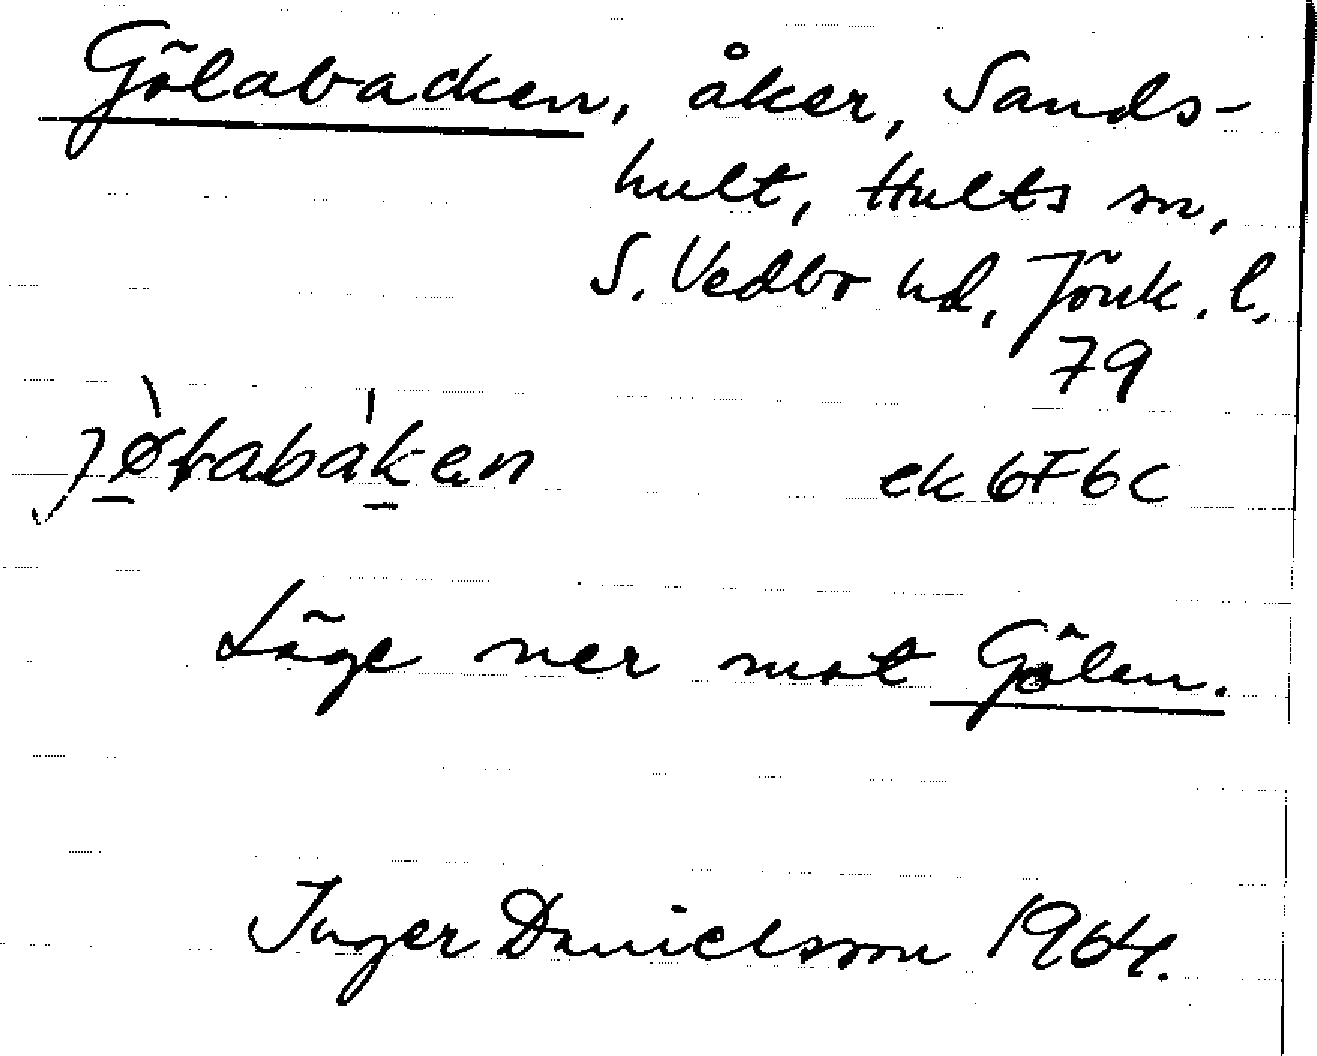 Gölabacken, åker, Sands-
hult, Hults sn,
S. Vedbo hd, Jönk. l.
79
ek 6F6c
Läge ner mot Gölen.
Inger Danielsson 1964.